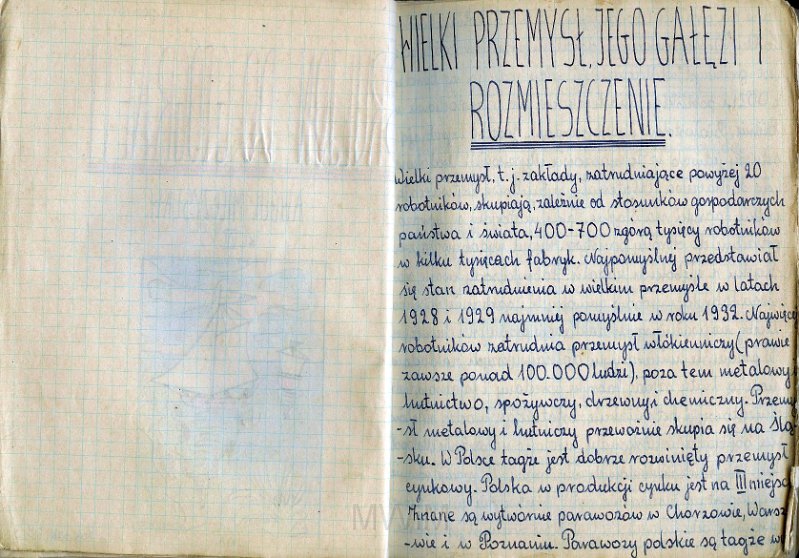 WIELKI PRZEMYSŁ, JEGO GAŁĘZI I
ROZMIESZCZENIE.
Wielki przemysł, t.j. zakłady, zatrudniające powyżej 20
robotników, skupiają, zależnie od stosunków gospodarczych
państwa i świata, 400-700 zgórą tysięcy robotników
w kilku tysięcach fabryk. Najpomyślnej przedstawiał
się stan zatrudnienia w wielkim przemyśle w latach
1928 i 1929 najmniej pomyślnie w roku 1932. Najwięcej
robotników zatrudnia przemysł włókienniczy (prawie
zawsze ponad 100.000 ludzi), poza tem metalowy,
hutnictwo, spożywczy, drzewny i chemiczny. Przemy
-sł metalowy i hutniczy przeważnie skupia się na Ślą
-sku. W Polsce tagże jest dobrze rozwinięty przemysł
cynkowy. Polska w produkcji cynku jest na III miejscu
Znane są wytwórnie parawozów w Chorzowie, Warsz
-wie i w Poznaniu. Parawozy polskie są tagże w